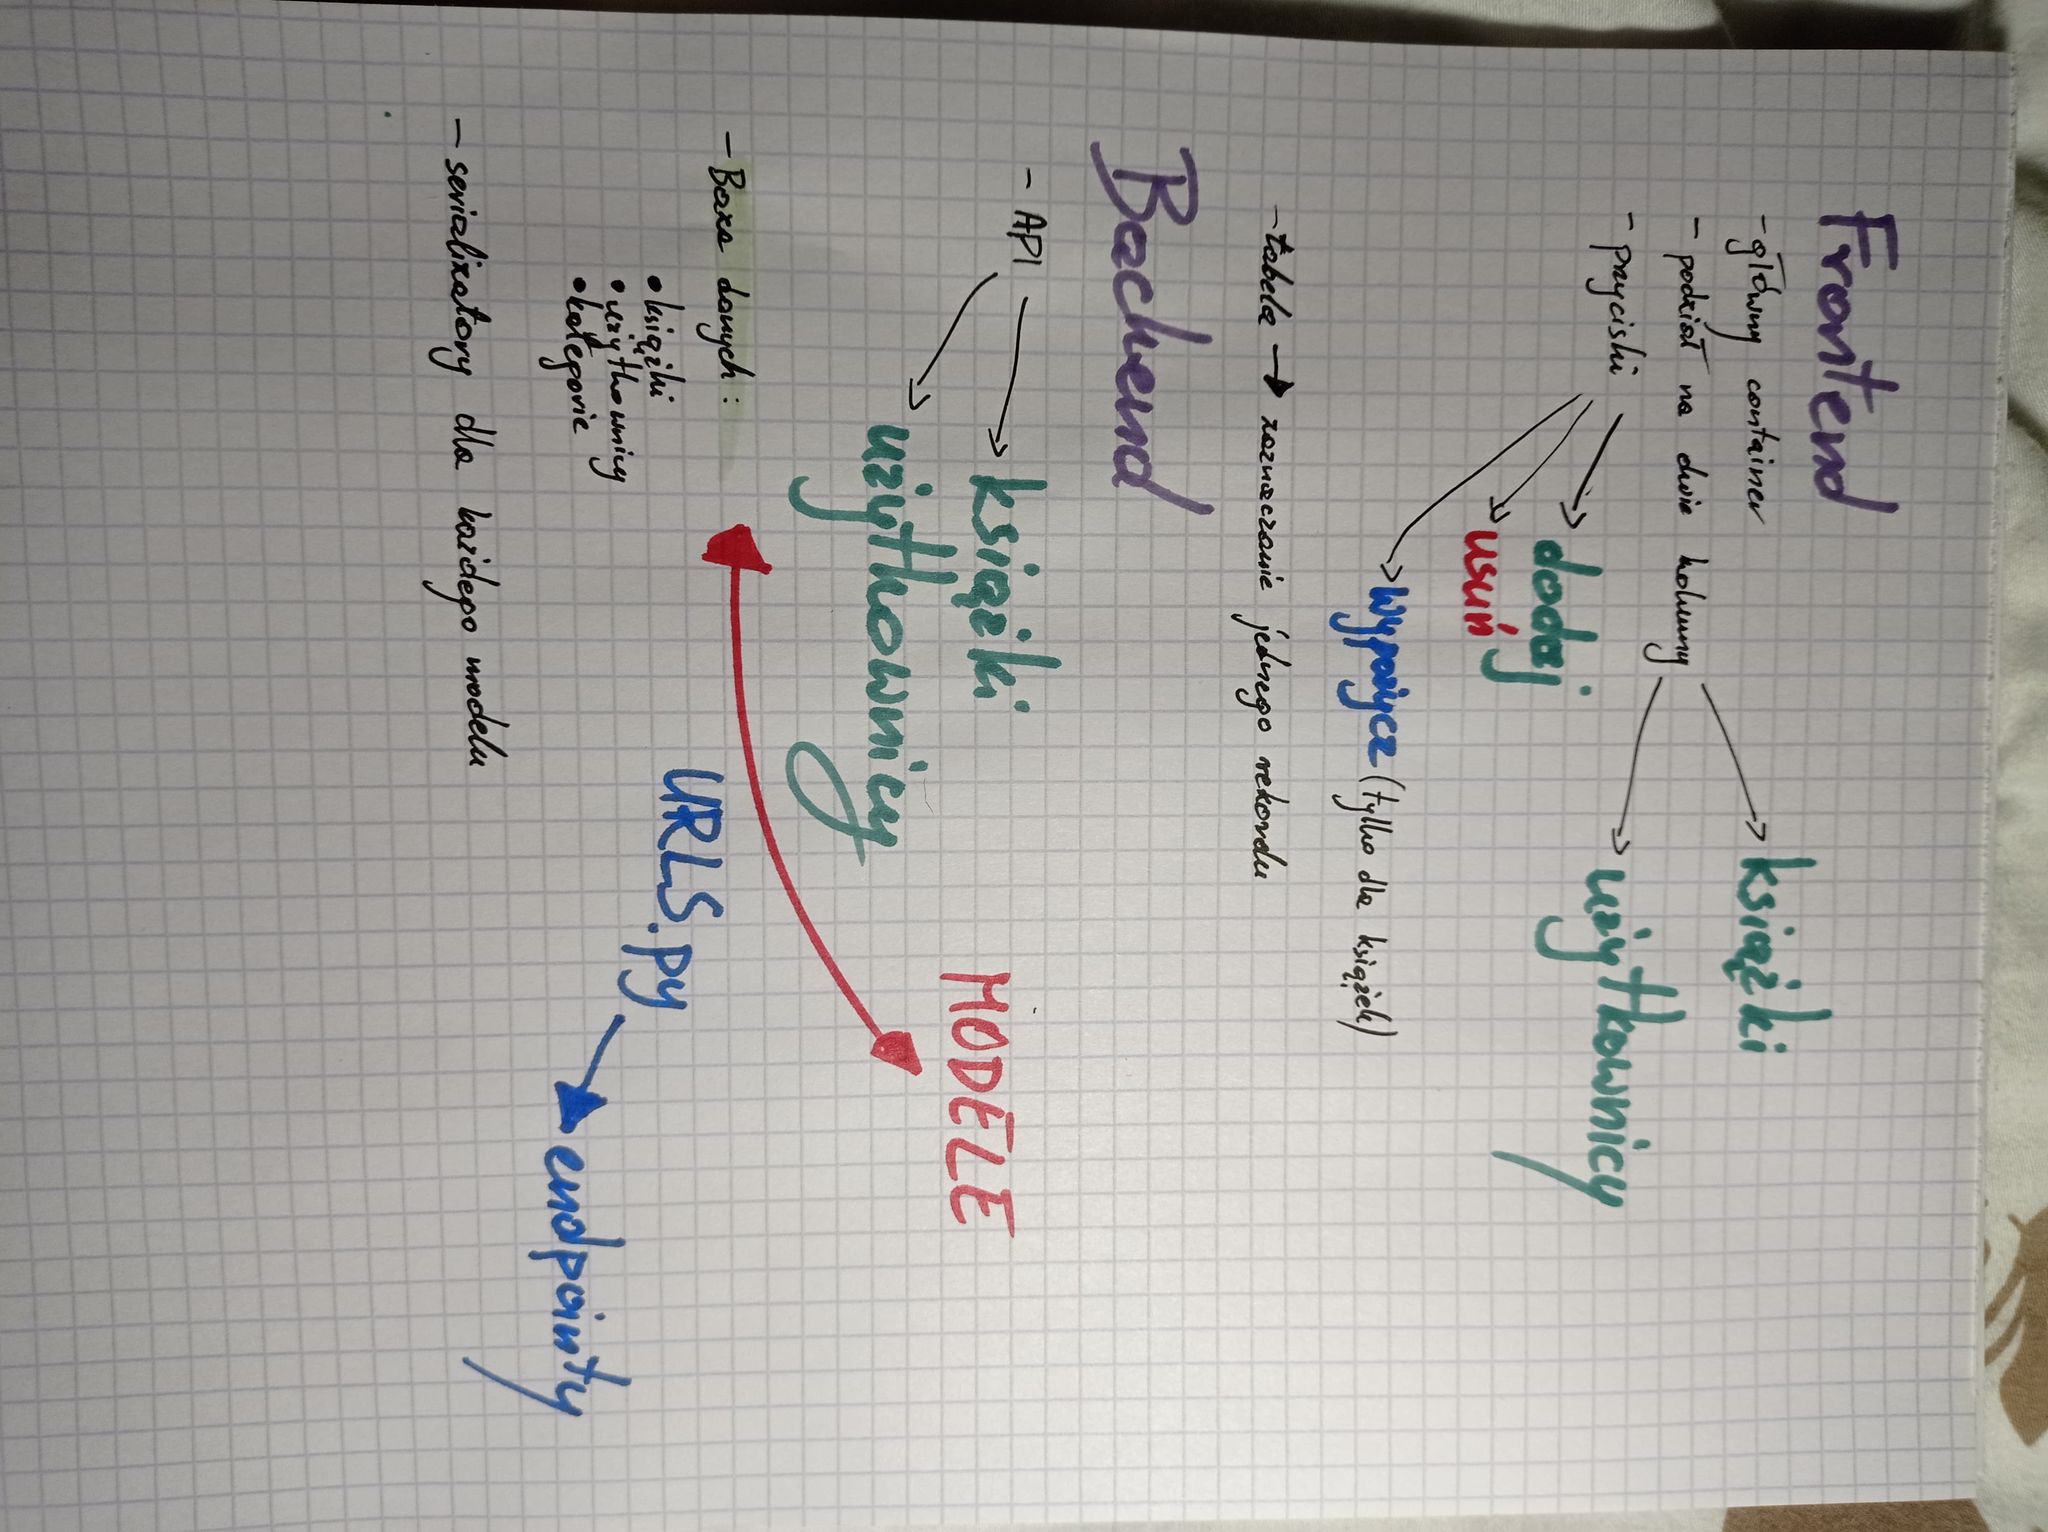 Frontend
- główny container
książki
- podział na dwie kolumny
użytkownicy
- przyciski
dodaj
usuń
wypożycz (tylko dla książek)
- tabela → zaznaczanie jednego rekordu
Backend
- API
książki
MODELE
użytkownicy
- Baza danych :
URLS.py
• książki
• użytkownicy
• kategorie
endpointy
- serializatory dla każdego modelu